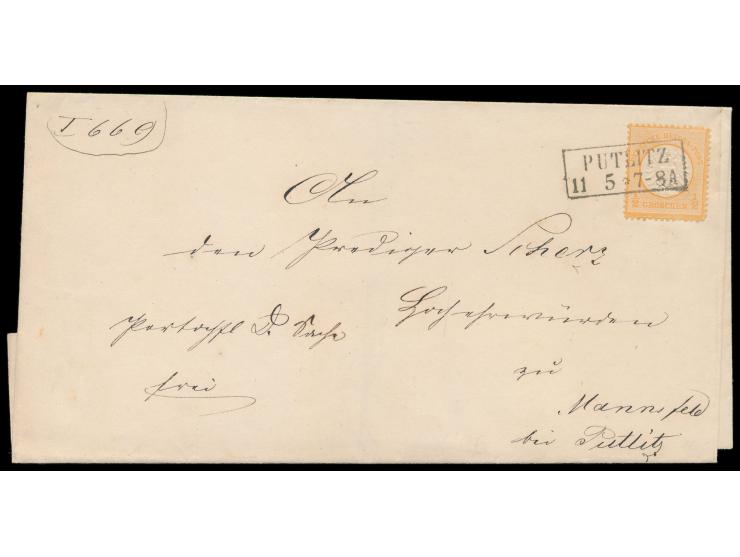 I 669
PUTLITZ
11 5 * 7-8A
½ GROSCHEN ½
An
den Prediger Scherz
Hochehrwürden
Portopfl D. Sache
frei
zu
Mannsfeld
bei Putlitz